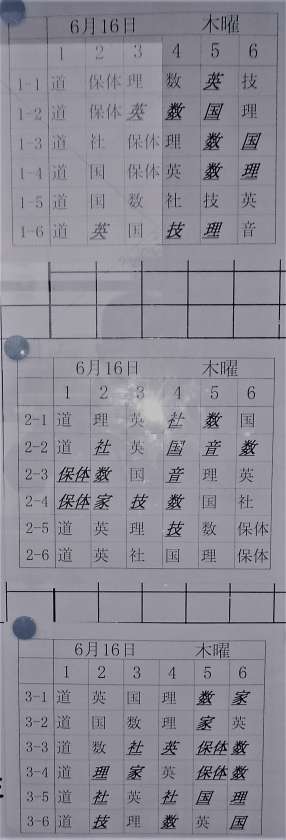 6月16日 木曜
1 2 3 4 5 6
1-1 道 保体 理 数 英 技
1-2 道 保体 英 数 国 理
1-3 道 社 保体 理 数 国
1-4 道 国 保体 英 数 理
1-5 道 国 数 社 技 英
1-6 道 英 国 技 理 音
6月16日 木曜
1 2 3 4 5 6
2-1 道 理 英 社 数 国
2-2 道 社 英 国 音 数
2-3 保体 数 国 音 理 英
2-4 保体 家 技 数 国 社
2-5 道 英 理 技 数 保体
2-6 道 英 社 国 理 保体
6月16日 木曜
1 2 3 4 5 6
3-1 道 英 国 理 数 家
3-2 道 国 数 理 家 英
3-3 道 数 社 英 保体 数
3-4 道 理 家 英 保体 数
3-5 道 社 英 社 国 理
3-6 道 技 理 数 英 国